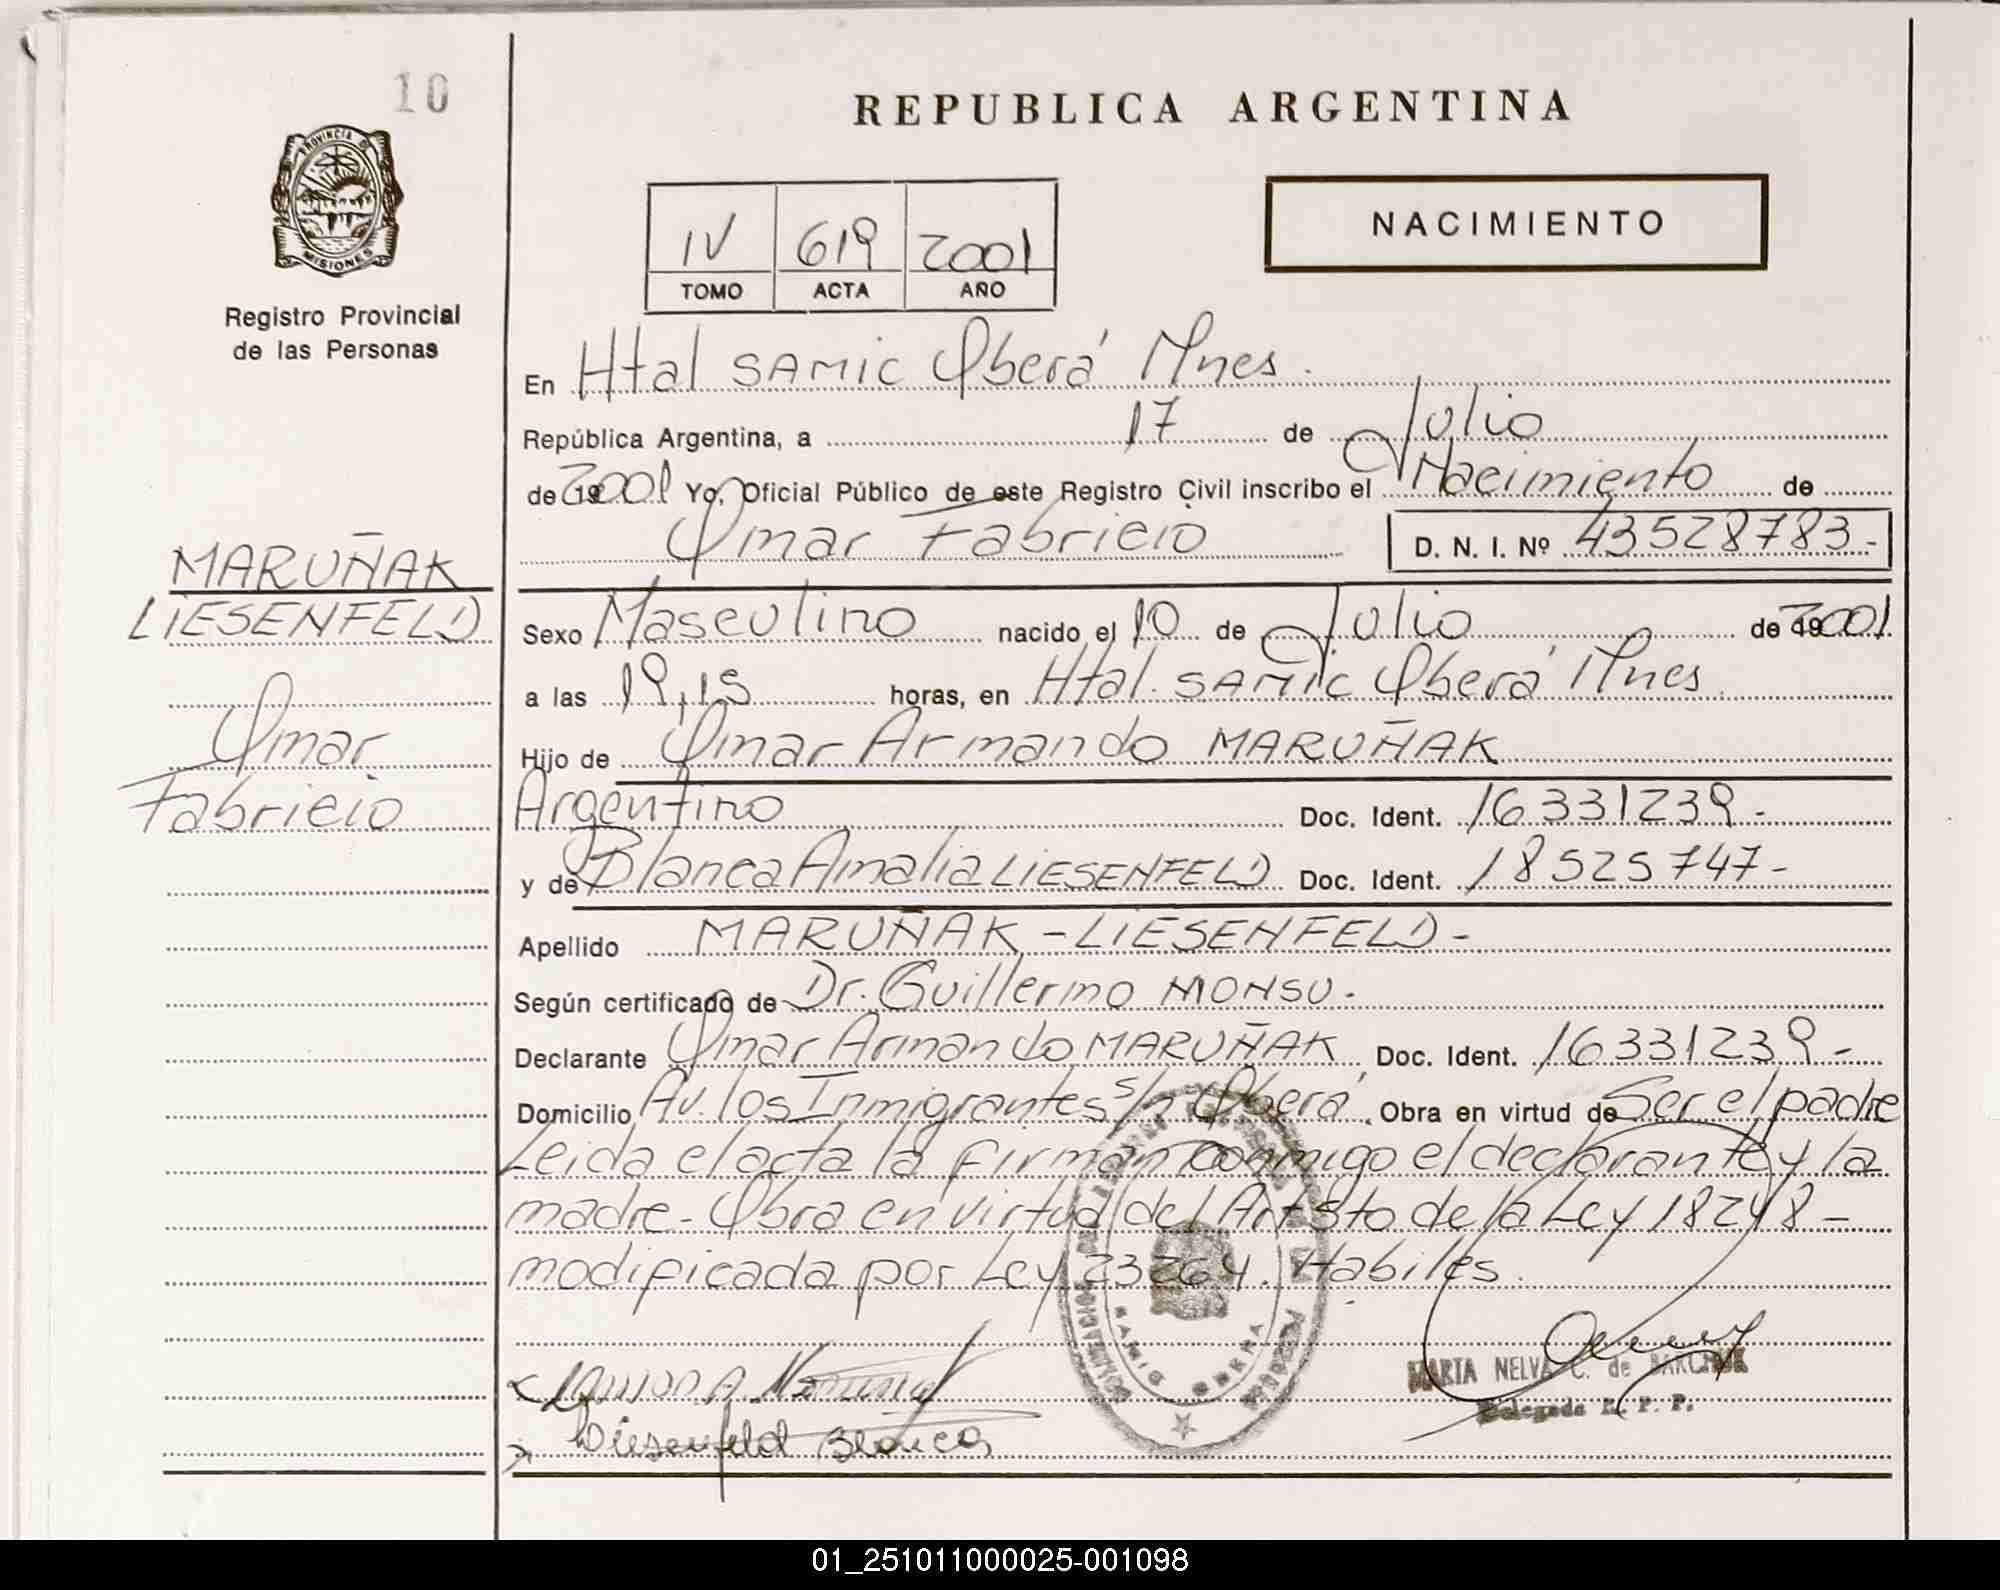 10
PROVINCIA DE
MISIONES
Registro Provincial
de las Personas
REPUBLICA ARGENTINA
NACIMIENTO
IV 619 2001
TOMO ACTA AÑO
En Htal SAMIC Oberá Mnes.
República Argentina, a 17 de Julio
de 19 2001 Yo, Oficial Público de este Registro Civil inscribo el Nacimiento de
Omar Fabricio D. N. I. Nº 43528783-
MARUÑAK
LIESENFELD
Omar
Fabricio
Sexo Masculino nacido el 10 de Julio de 19 2001
a las 19,15 horas, en Htal. SAMIC Oberá Mnes
Hijo de Omar Armando MARUÑAK
Argentino Doc. Ident. 16331239-
y de Blanca Amalia LIESENFELD Doc. Ident. 18525747-
Apellido MARUÑAK - LIESENFELD-
Según certificado de Dr. Guillermo MONSU.
Declarante Omar Armando MARUÑAK Doc. Ident. 16331239-
Domicilio Av. los Inmigrantes s/n Oberá. Obra en virtud de Ser el padre
Leida el acta la firman conmigo el declarante y la
madre- Obra en virtud del Art 5to de la Ley 18248-
modificada por Ley 23264. Habiles.
SAMIC OBERA
MARIA NELVA C. de
Delegada R. P. P.
Liesenfeld Blanca
01_251011000025-001098